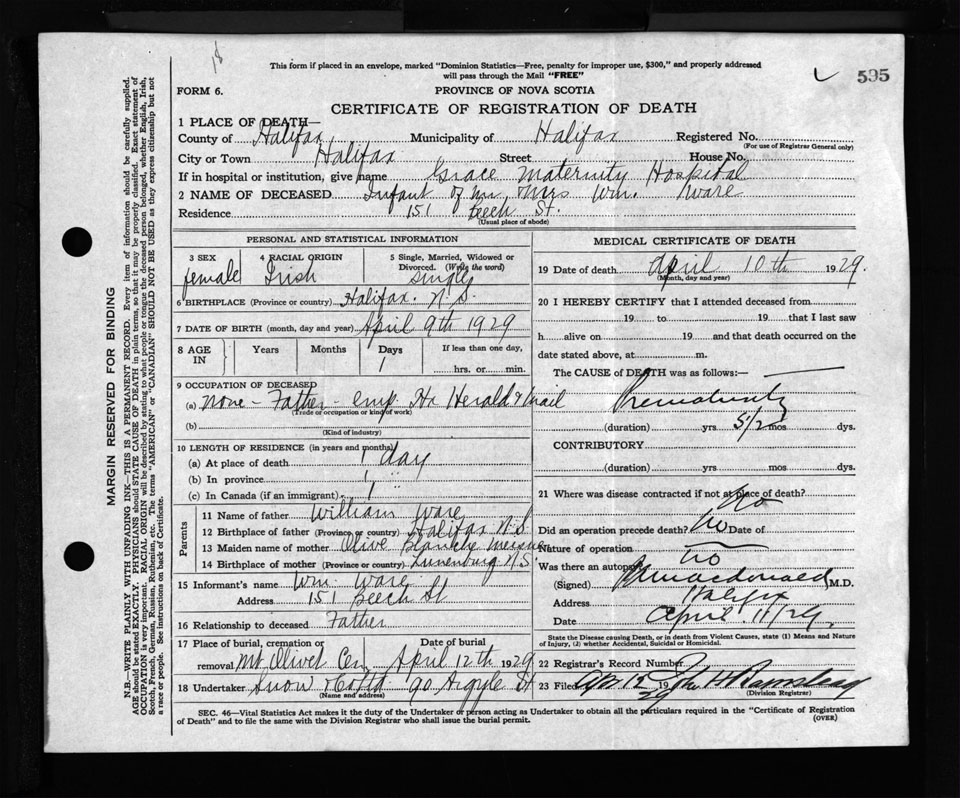 18
This form if placed in an envelope, marked "Dominion Statistics—Free, penalty for improper use, $300," and properly addressed
will pass through the Mail "FREE"
595
FORM 6.
PROVINCE OF NOVA SCOTIA
CERTIFICATE OF REGISTRATION OF DEATH
1 PLACE OF DEATH—
County of Halifax Municipality of Halifax Registered No.
(For use of Registrar General only)
City or Town Halifax Street House No.
If in hospital or institution, give name Grace Maternity Hospital
2 NAME OF DECEASED Infant of Mr Mrs Wm. Ware
Residence 151 Beech St.
(Usual place of abode)
PERSONAL AND STATISTICAL INFORMATION
3 SEX 4 RACIAL ORIGIN 5 Single, Married, Widowed or
Divorced. (Write the word)
female Irish Single
6 BIRTHPLACE (Province or country) Halifax. N.S.
7 DATE OF BIRTH (month, day and year) April 9th 1929
8 AGE IN Years Months Days If less than one day,
1 hrs. or min.
9 OCCUPATION OF DECEASED
(a) None - Father - emp. Hx Herald & Mail
(Trade or occupation or kind of work)
(b)
(Kind of industry)
10 LENGTH OF RESIDENCE (in years and months)
(a) At place of death 1 day
(b) In province 1 "
(c) In Canada (if an immigrant) 1 "
Parents
11 Name of father William Ware
12 Birthplace of father (Province or country) Halifax N.S.
13 Maiden name of mother Olive Blanche
14 Birthplace of mother (Province or country) Lunenburg N.S.
15 Informant's name Wm. Ware
Address 151 Beech St
16 Relationship to deceased Father
17 Place of burial, cremation or removal Date of burial
Mt Olivet Cem. April 12th 1929
18 Undertaker Snow & Co Ltd 90 Argyle St
(Name and address)
MEDICAL CERTIFICATE OF DEATH
19 Date of death April 10th 1929.
(Month, day and year)
20 I HEREBY CERTIFY that I attended deceased from
19 to 19 that I last saw
h alive on 19 and that death occurred on the
date stated above, at m.
The CAUSE of DEATH was as follows:—
Prematurity
(duration) yrs 5 1/2 mos dys.
CONTRIBUTORY
(duration) yrs. mos dys.
21 Where was disease contracted if not at place of death?
No
Did an operation precede death? No Date of
Nature of operation
Was there an autopsy No
(Signed) Macdonald M.D.
Address Halifax
Date April 11/29.
State the Disease causing Death, or in death from Violent Causes, state (1) Means and Nature
of Injury, (2) whether Accidental, Suicidal or Homicidal.
22 Registrar's Record Number
23 Filed Apr 12 19
(Division Registrar)
SEC. 46—Vital Statistics Act makes it the duty of the Undertaker or person acting as Undertaker to obtain all the particulars required in the "Certificate of Registration
of Death" and to file the same with the Division Registrar who shall issue the burial permit.
(OVER)
MARGIN RESERVED FOR BINDING
N.B.—WRITE PLAINLY WITH UNFADING INK—THIS IS A PERMANENT RECORD. Every item of information should be carefully supplied.
AGE should be stated EXACTLY. PHYSICIANS should STATE CAUSE OF DEATH in plain terms, so that it may be properly classified. Exact statement of
OCCUPATION is very important. RACIAL ORIGIN will be described by stating to what people or tongue the deceased person belonged, whether English, Irish,
Scotch, French, German, Russian, Ruthenian, etc. The terms "AMERICAN" or "CANADIAN" SHOULD NOT BE USED as they express citizenship but not
a race or people. See instructions on back of Certificate.